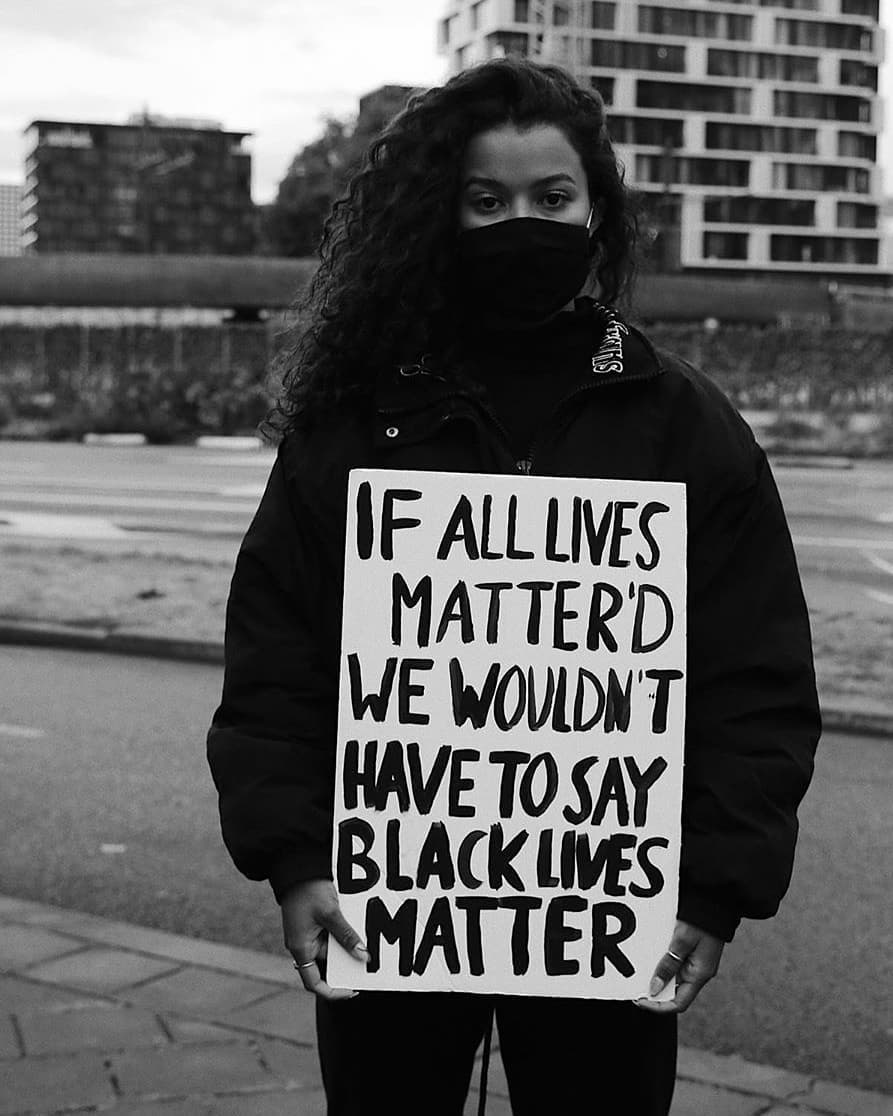 IF ALL LIVES
MATTER'D
WE WOULDN'T
HAVE TO SAY
BLACK LIVES
MATTER